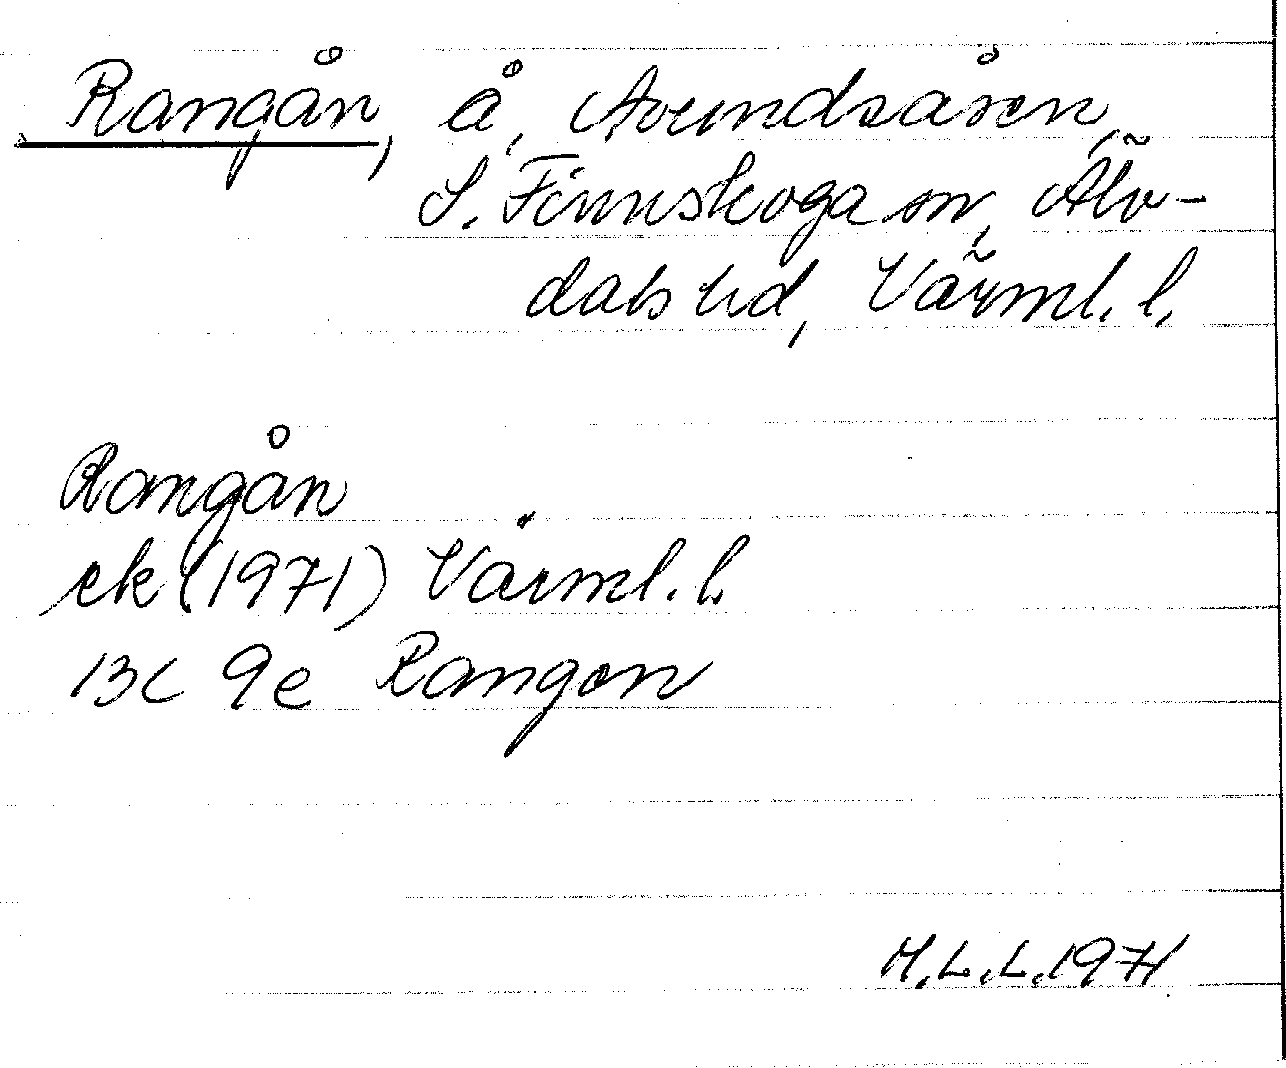 Rangån, å, Avundsåsen,
S. Finnskoga sn, Älv-
dals hd, Värml. l.
Rangån
ek (1971) Värml. l.
13C 9e Rangon
M.L.L. 1971